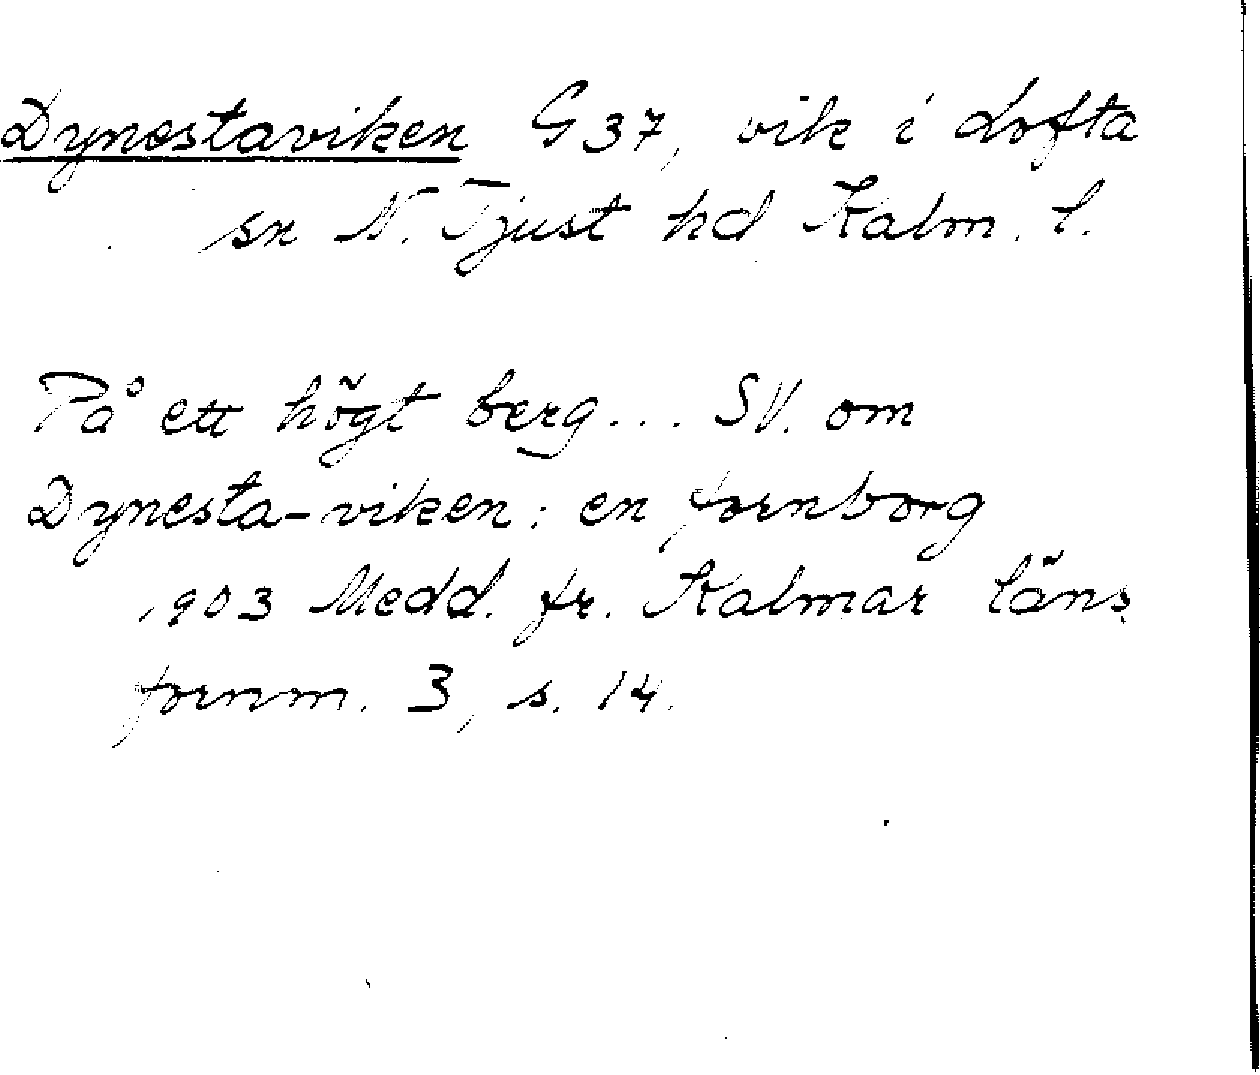 Dynestaviken G37, vik i Lofta
sn N. Tjust hd Kalm. l.
På ett högt berg... SV. om
Dynesta-viken: en fornborg
1903 Medd. fr. Kalmar läns
fornm. 3, s. 14.